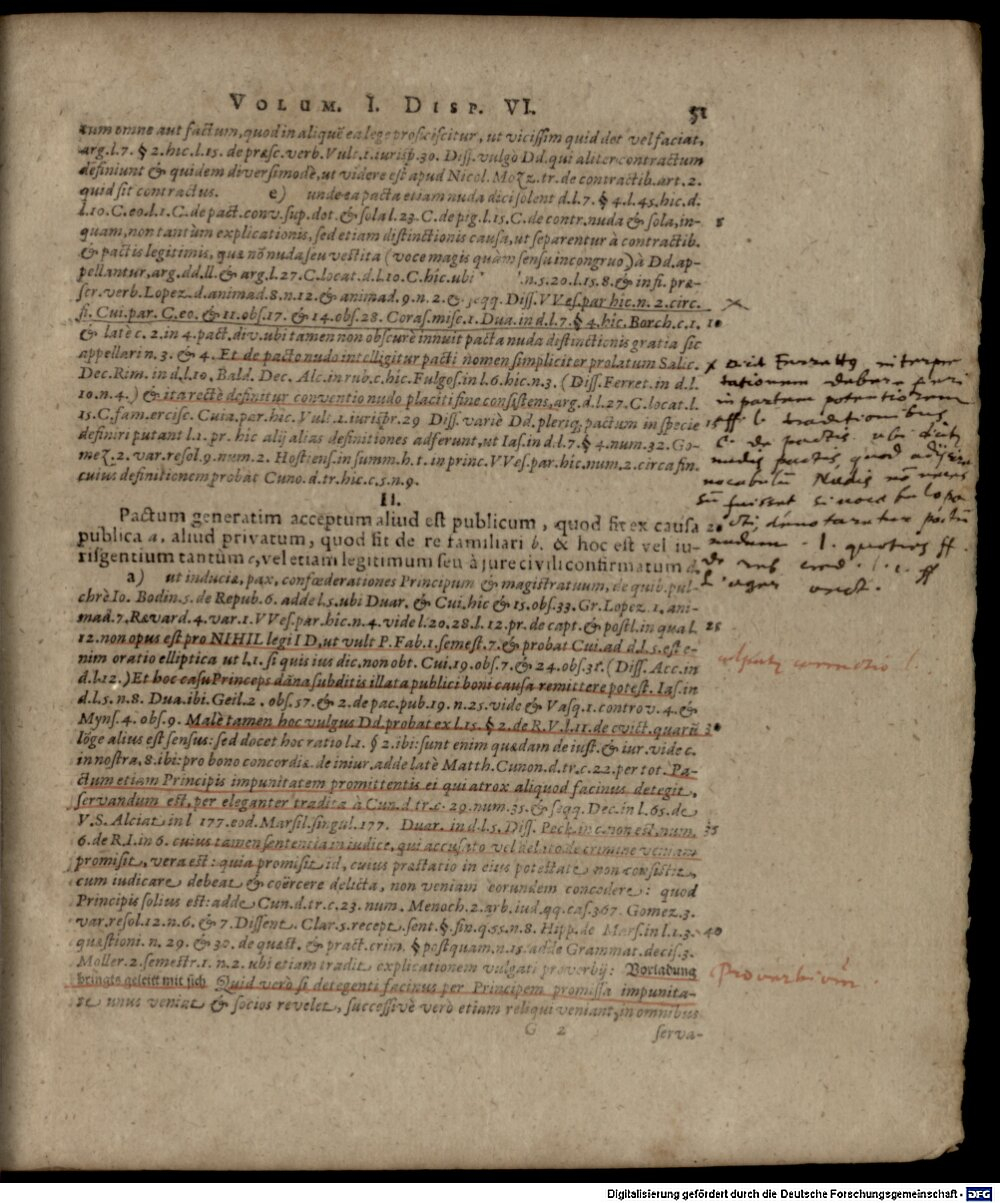 VOLUM. I. DISP. VI. 51
tum omne aut factum, quod in aliquē ea lege proficiscitur, ut vicissim quid det vel faciat,
arg. l. 7. § 2. hic. l. 15. de præsc. verb. Vult. 1. jurisp. 30. Diss. vulgò Dd. qui aliter contractum
definiunt & quidem diversimodè, ut videre est apud Nicol. Mozz. tr. de contractib. art. 2.
quid sit contractus. e) unde ea pacta etiam nuda dici solent d. l. 7. § 4. l. 45. hic. d.
l. 10. C. eo. l. 1. C. de pact. conv. sup. dot. & sola l. 23. C. de pig. l. 15. C. de contr. nuda & sola, in-
quam, non tantùm explicationis, sed etiam distinctionis causa, ut separentur à contractib. 5
& pactis legitimis, quæ nō nuda seu vestita (voce magis quàm sensu incongruo) à Dd. ap-
pellantur, arg. dd. ll. & arg. l. 27. C. locat. d. l. 10. C. hic. ubi n. 5. 20. l. 15. 8. & infi. præ-
scr. verb. Lopez. d. animad. 8. n. 12. & animad. 9. n. 2. & seqq. Diss. VVes. par hic. n. 2. circ.
fi. Cui. par. C. eo. & 11. obs. 17. & 14. obs. 28. Coras. misc. 1. Dua. in d. l. 7. § 4. hic. Borch. c. 1. 10
& latè c. 2. in 4. pact. div. ubi tamen non obscurè innuit pacta nuda distinctionis gratia sic
appellari n. 3. & 4. Et de pacto nudo intelligitur pacti nomen simpliciter prolatum Salic.
Dec. Rim. in d. l. 10. Bald. Dec. Alc. in rub. c. hic. Fulgos. in l. 6. hic. n. 3. (Diss. Ferret. in d. l.
10. n. 4.) & ita rectè definitur conventio nudo placiti fine consistens, arg. d. l. 27. C. locat. l.
15. C. fam. ercisc. Cuia. par. hic. Vult. 1. iurispr. 29 Diss. variè Dd. pleriq; pactum in specie 15
definiri putant l. 1. pr. hic alij alias definitiones adferunt, ut Ias. in d. l. 7. § 4. num. 32. Go-
mez. 2. var. resol. 9. num. 2. Hostiens. in summ. h. t. in princ. VVes. par hic. num. 2. circa fin.
cuius definitionem probat Cuno. d. tr. hic. c. 5. n. 9.
II.
Pactum generatim acceptum aliud est publicum, quod fit ex causa
publica a. aliud privatum, quod fit de re familiari b. & hoc est vel iu- 20
ris gentium tantùm c, vel etiam legitimum seu à jure civili confirmatum d.
a) ut induciæ, pax, confœderationes Principum & magistratuum, de quib. pul-
chrè Io. Bodin. 5. de Repub. 6. adde l. 5. ubi Duar. & Cui. hic & 15. obs. 33. Gr. Lopez. 1. ani-
mad. 7. Rævard. 4. var. 1. VVes. par hic. n. 4. vide l. 20. 28. l. 12. pr. de capt. & postl. in qua l. 25
12. non opus est pro NIHIL legi ID, ut vult P. Fab. 1. semest. 7. & probat Cui. ad d. l. 5. est e-
nim oratio elliptica ut l. 1. si quis ius dic. non obt. Cui. 19. obs. 7. & 24. obs. 31. (Diss. Acc. in
d. l. 12.) Et hoc casu Princeps dāna subditis illata publici boni causa remittere potest. Ias. in
d. l. 5. n. 8. Dua. ibi. Geil. 2. obs. 57. & 2. de pac. pub. 19. n. 25. vide & Vasq. 1. controv. 4. &
Myns. 4. obs. 9. Malè tamen hoc vulgus Dd. probat ex l. 15. § 2. de R. V. l. 11. de evict. quarū 30
lōge alius est sensus: sed docet hoc ratio l. 1. § 2. ibi: sunt enim quædam de iust. & iur. vide c.
in nostra. 8. ibi: pro bono concordiæ de iniur. adde latè Matth. Cunon. d. tr. c. 22. per tot. Pa-
ctum etiam Principis impunitatem promittentis ei qui atrox aliquod facinus detegit,
servandum est, per eleganter tradita à Cun. d. tr. c. 29. num. 35. & seqq. Dec. in l. 65. de
V. S. Alciat in l 177. eod. Marsil. singul. 177. Duar. in d. l. 5. Diss. Peck. in c. non est. num. 35
6. de R. I. in 6. cuius tamen sententia in iudice, qui accusato vel delato de crimine veniam
promisit, vera est: quia promisit id, cuius præstatio in eius potestate non consistit,
cum iudicare debeat & coërcere delicta, non veniam eorundem concedere: quod
Principis solius est: adde Cun. d. tr. c. 23. num. Menoch. 2. arb. iud. qq. cas. 367. Gomez. 3.
var. resol. 12. n. 6. & 7. Dissent. Clar. 5. recept. sent. §. fin. q. 55. n. 8. Hipp. de Mars. in l. 1. 3. 40
quæstioni. n. 29. & 30. de quæst. & pract. crim. § postquam. n. 15. adde Grammat. decis. 3.
Moller. 2. semestr. 1. n. 2. ubi etiam tradit explicationem vulgati proverbij: Vorladung
bringts geleitt mit sich. Quid verò si detegenti facinus per Principem promissa impunita-
te unus veniat & socios revelet, successivè verò etiam reliqui veniant, in omnibus
G 2 serva-
x Ferrettus interpre
tationem debere fieri
in partem potentiorem
C. de pactis. ubi
nudis pactis quod
Proverbium.
Digitalisierung gefördert durch die Deutsche Forschungsgemeinschaft - DFG